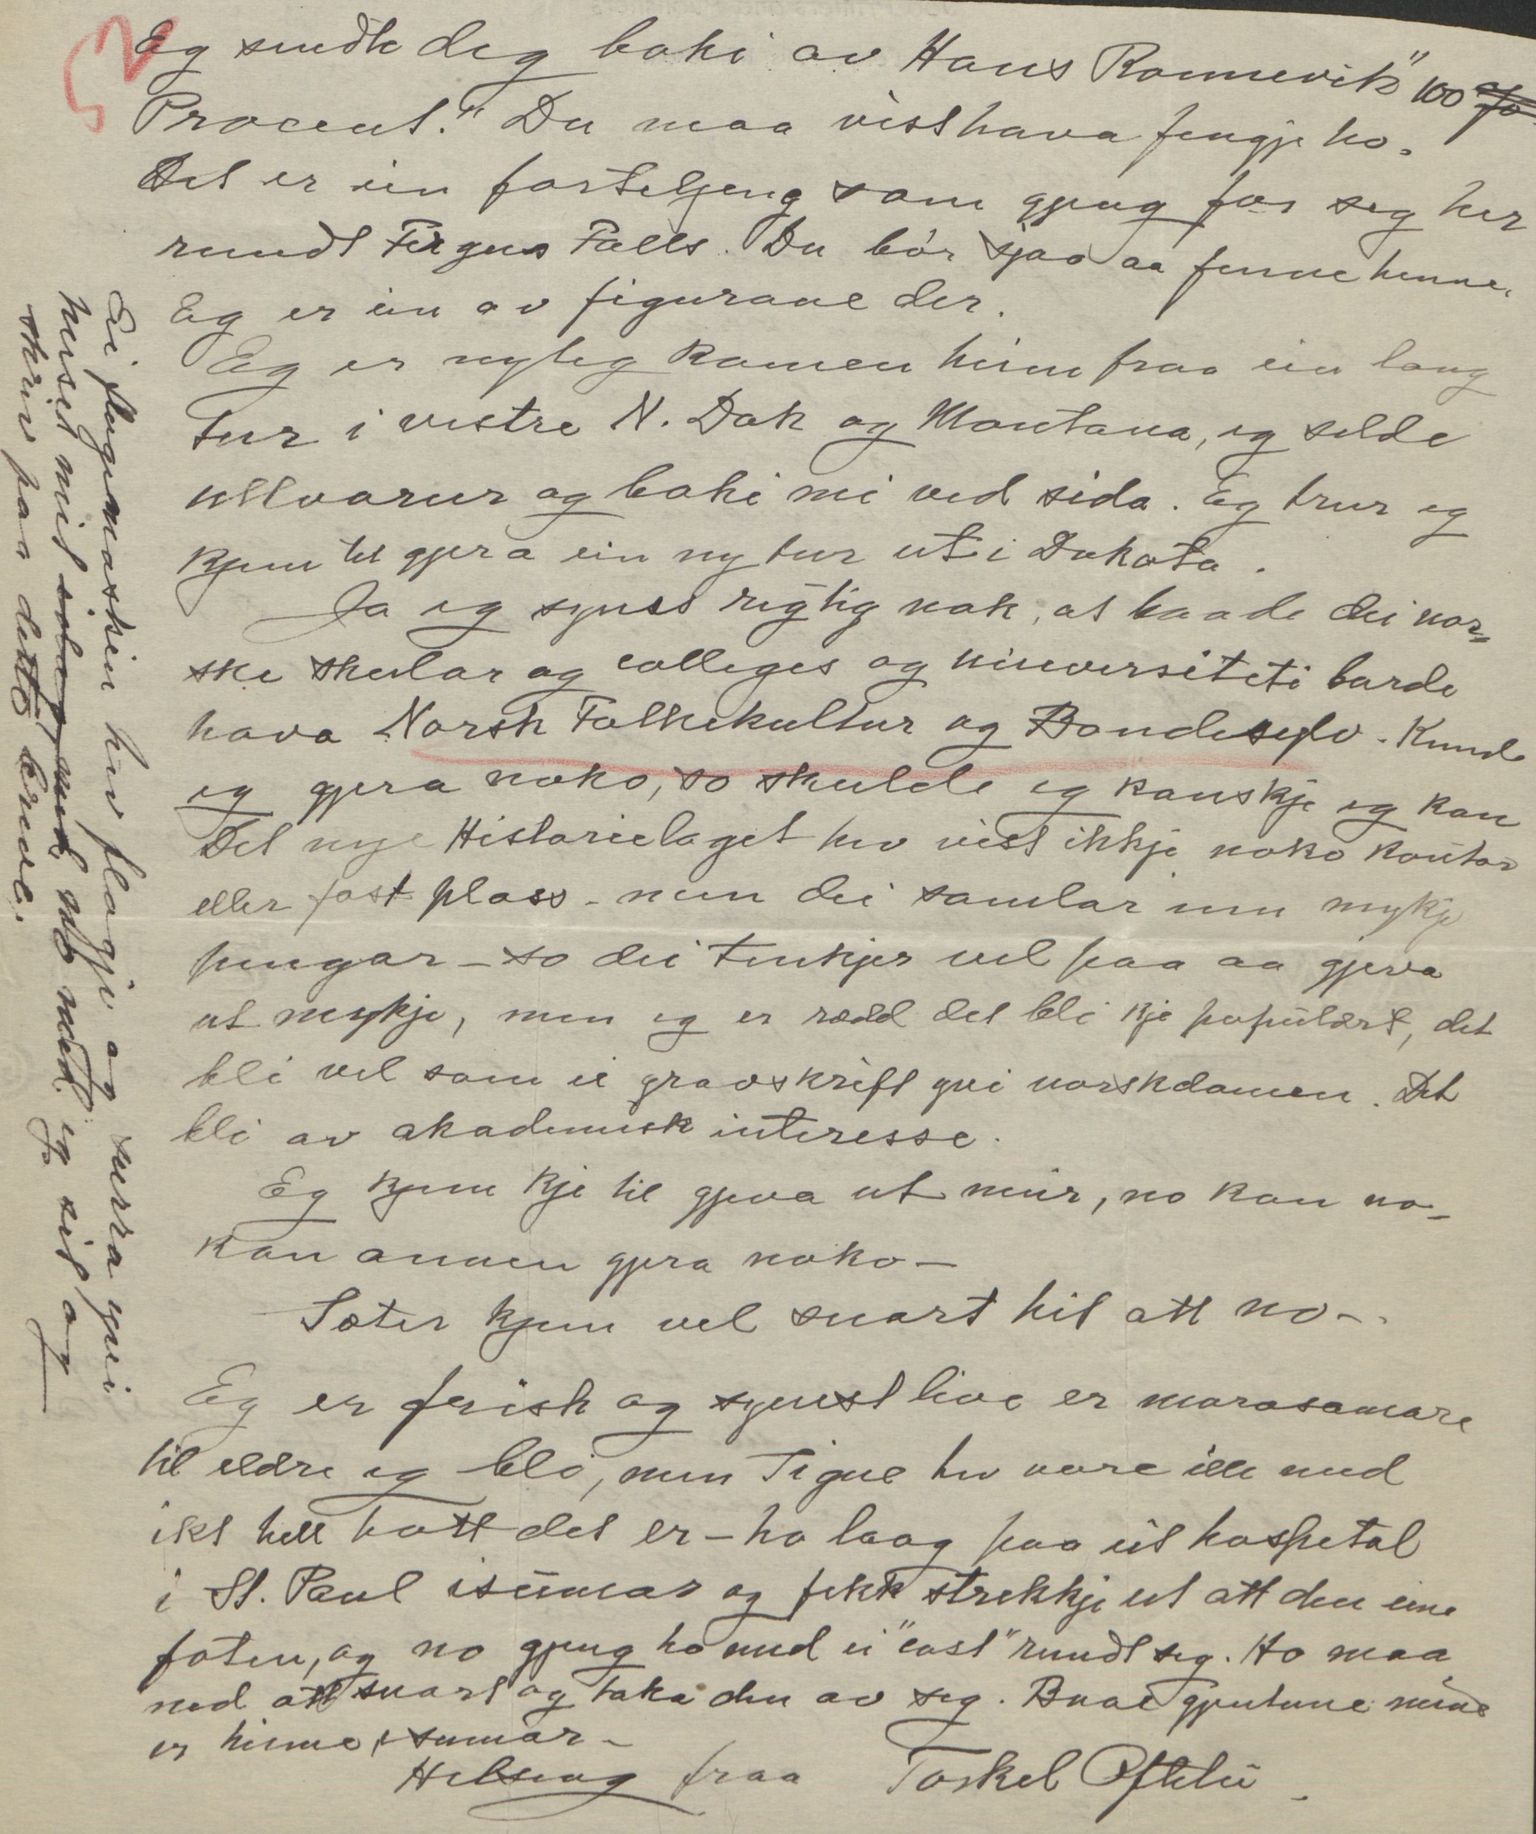 Eg sendte deg boki av Hans Rønnevik "100
Procent." Du maa visst hava fengje ho.
Det er ein forteljeng som gjeng for seg her
rundt Fergus Falls. Du bør sjaa aa fenne henne.
Eg er ein av figurane der.
Eg er nyleg komen heim fraa ein lang
tur i vestre N. Dak og Montana, eg selde
ullvarur og boki mi ved sida. Eg trur eg
kjem til gjera ein ny tur ut i Dakota.
Ja eg synes rigtig nok, at baade dei nor-
ske skular og colleges og universiteti burde
hava Norsk Folkekultur og Bondesylv. Kunde
eg gjera noko, so skulde eg kanskje eg kan
Det nye Historielaget hev visst ikkje noko kontor
eller fast plass - men dei samlar inn mykje
pengar - so dei tenkjer vel paa aa gjeva
ut mykje, men eg er rædd det bli kje populært, det
bli vel som ei gravskrift yvi norskdomen. Det
bli av akademisk interesse.
Eg kjem kje til gjeva ut meir, no kan no-
kon annen gjera noko -
Sæter kjem vel snart hit att no -
Eg er frisk og synest live er morosamare
til eldre eg bli, men Signe hev vore ille med
ikt hell hott det er - ho laag paa eit hospetal
i St. Paul i sumar og fekk strekkje ut att den eine
foten, og no gjeng ho med ei "cast" rundt seg. Ho maa
ned att snart og taka den av seg. Baae gjentune mine
er heime i sumar -
Helseng fraa Torkel Oftelie.
Ei flogmaskin hev flogje og surra yvi
huset mit no med eg sit og
skriv paa dette brevet.